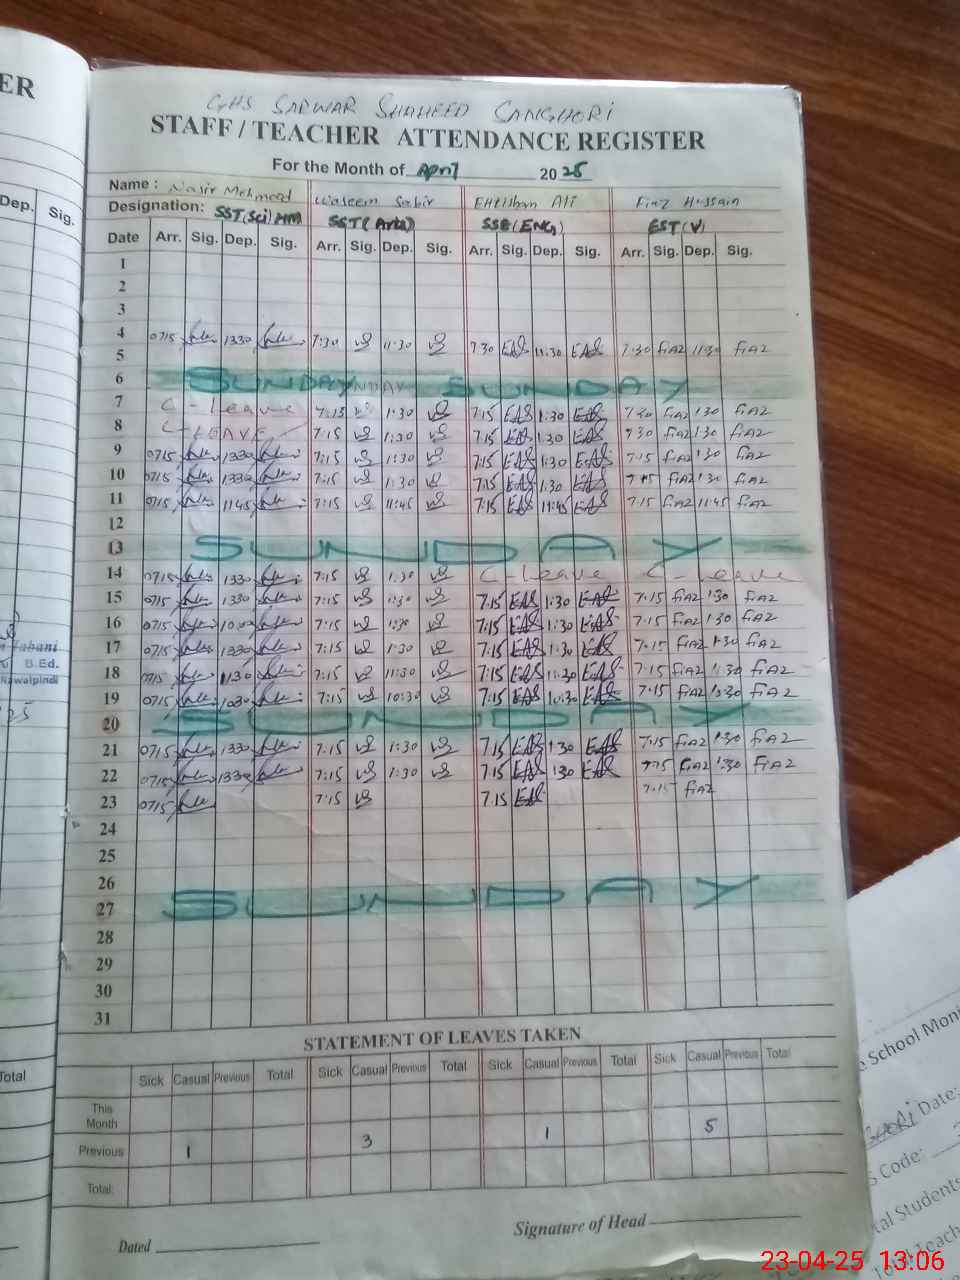 ER
GHS SARWAR SHAHEED SANGHORI
STAFF / TEACHER ATTENDANCE REGISTER
For the Month of April 2025
Name : Nasir Mehmood Waseem Sabir Ehtisham Ali Fiaz Hussain
Designation: SST(Sci) HM SST(Arts) SSE(ENG) EST(V)
Dep. Sig.
Date Arr. Sig. Dep. Sig. Arr. Sig. Dep. Sig. Arr. Sig. Dep. Sig. Arr. Sig. Dep. Sig.
1
2
3
4 0715 1330 7:30 11:30 7:30 EAS 11:30 EAS 7:30 fiaz 11:30 fiaz
5
6 SUNDAY SUNDAY
7 C-Leave 7:15 1:30 7:15 EAS 1:30 EAS 7:30 fiaz 1:30 fiaz
8 C-LEAVE 7:15 1:30 7:15 EAS 1:30 EAS 7:30 fiaz 1:30 fiaz
9 0715 1330 7:15 1:30 7:15 EAS 1:30 EAS 7:15 fiaz 1:30 fiaz
10 0715 1330 7:15 1:30 7:15 EAS 1:30 EAS 7:15 fiaz 1:30 fiaz
11 0715 1145 7:15 11:45 7:15 EAS 11:45 EAS 7:15 fiaz 11:45 fiaz
12
13 SUNDAY
14 0715 1330 7:15 1:30 C-Leave C-Leave
15 0715 1330 7:15 1:30 7:15 EAS 1:30 EAS 7:15 fiaz 1:30 fiaz
16 0715 7:15 1:30 7:15 EAS 1:30 EAS 7:15 fiaz 1:30 fiaz
17 0715 1330 7:15 1:30 7:15 EAS 1:30 EAS 7:15 fiaz 1:30 fiaz
18 0715 1130 7:15 11:30 7:15 EAS 11:30 EAS 7:15 fiaz 11:30 fiaz
19 0715 1030 7:15 10:30 7:15 EAS 10:30 EAS 7:15 fiaz fiaz
20 SUNDAY
21 0715 1330 7:15 1:30 7:15 EAS 1:30 EAS 7:15 fiaz 1:30 fiaz
22 0715 1330 7:15 1:30 7:15 EAS 1:30 EAS 7:15 fiaz 1:30 fiaz
23 0715 7:15 7:15 EAS 7:15 fiaz
24
25
26
27 SUNDAY
28
29
30
31
B.Ed.
Rawalpindi
STATEMENT OF LEAVES TAKEN
Total
Sick Casual Previous Total Sick Casual Previous Total Sick Casual Previous Total Sick Casual Previous Total
This
Month
Previous 1 3 1 5
Total:
Dated
Signature of Head
School Moni
Date:
S Code:
tal Students
Total Teach
23-04-25 13:06